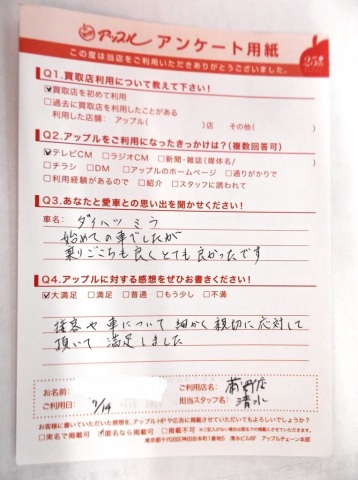 アップル アンケート用紙
この度は当店をご利用いただきありがとうございました。
Q1.買取店利用について教えて下さい!
☑買取店を初めて利用
□過去に買取店を利用したことがある
利用した店舗: アップル( )店 その他( )
Q2.アップルをご利用になったきっかけは?(複数回答可)
☑テレビCM □ラジオCM □新聞・雑誌(媒体名/ )
□チラシ □DM □アップルのホームページ □通りがかりで
□利用経験があるので □紹介 □スタッフに誘われて
Q3.あなたと愛車との思い出を聞かせください!
車名: ダイハツ ミラ
始めての車でしたが
乗りごこちも良くとても良かったです
Q4.アップルに対する感想をぜひお書きください!
☑大満足 □満足 □普通 □もう少し □不満
接客や車について細かく親切に応対して
頂いて満足しました
お名前: ご利用店名: 店
ご利用日: 7/14 担当スタッフ名: 清水
お客様に書いていただいた感想を、アップルHPや広告に掲載させていただいてもよろしいでしょうか?
□実名で掲載可 ☑匿名なら掲載可 □掲載不可 ※ご記入がない場合は匿名での掲載とさせていただきます。
東京都千代田区神田岩本町1番地5 清水ビル6F アップルチェーン本部